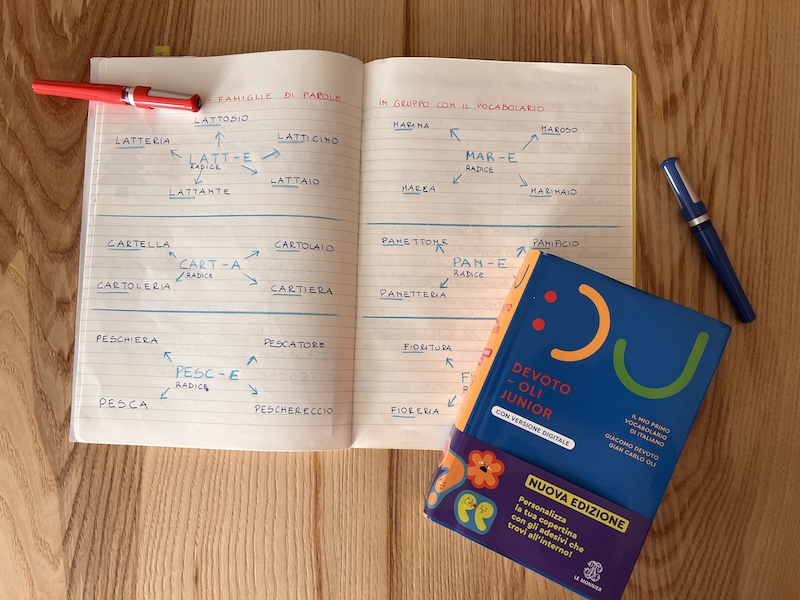 - FAMIGLIE DI PAROLE
LATTOSIO
LATTERIA
LATTICINO
LATT-E
RADICE
LATTAIO
LATTANTE
CARTELLA
CARTOLAIO
CART-A
RADICE
CARTOLERIA
CARTIERA
PESCHIERA
PESCATORE
PESC-E
RADICE
PESCA
PESCHERECCIO
IN GRUPPO CON IL VOCABOLARIO
MARINA
MAROSO
MAR-E
RADICE
MAREA
MARINAIO
PANETTONE
PANIFICIO
PAN-E
RADICE
PANETTERIA
FIORITURA
FIORERIA
DEVOTO
– OLI
JUNIOR
CON VERSIONE DIGITALE
IL MIO PRIMO
VOCABOLARIO
DI ITALIANO
GIACOMO DEVOTO
GIAN CARLO OLI
NUOVA EDIZIONE
Personalizza
la tua copertina
con gli adesivi che
trovi all'interno!
LE MONNIER